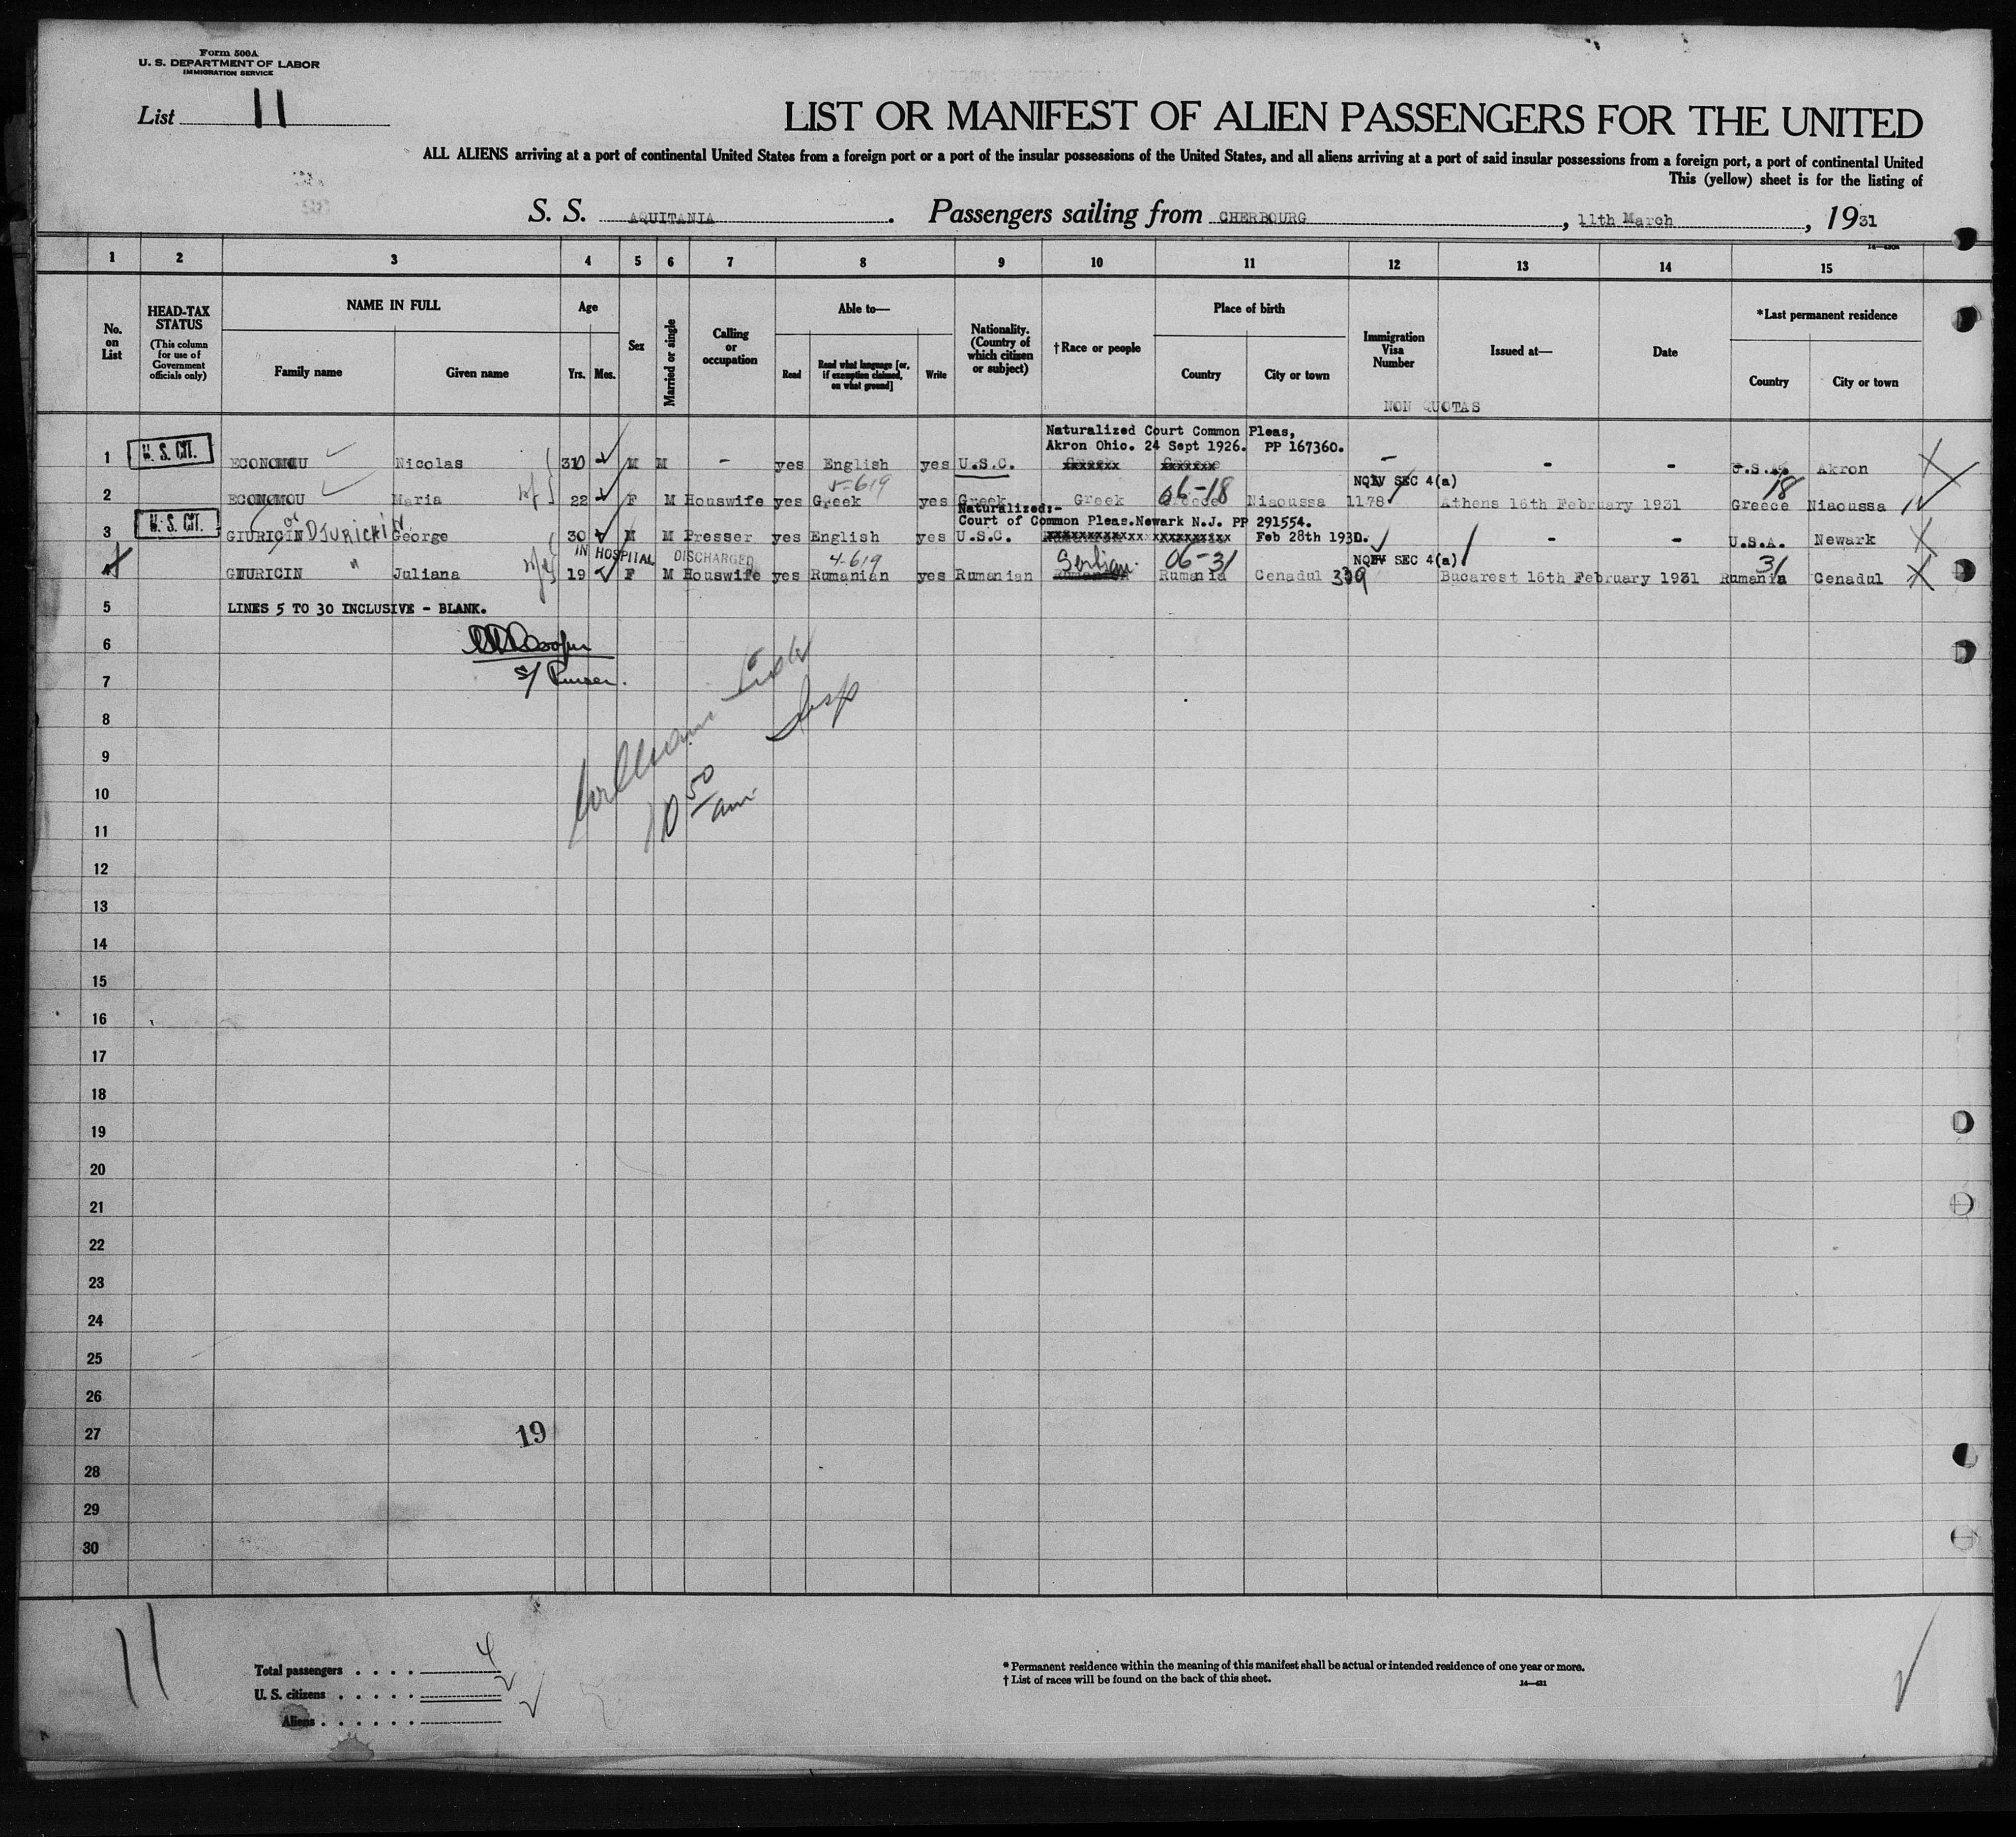 Form 500A
U. S. DEPARTMENT OF LABOR
IMMIGRATION SERVICE
List 11
LIST OR MANIFEST OF ALIEN PASSENGERS FOR THE UNITED
ALL ALIENS arriving at a port of continental United States from a foreign port or a port of the insular possessions of the United States, and all aliens arriving at a port of said insular possessions from a foreign port, a port of continental United
This (yellow) sheet is for the listing of
S. S. AQUITANIA . Passengers sailing from CHERBOURG , 11th March , 1931
1 2 3 4 5 6 7 8 9 10 11 12 13 14 15
No. on List
HEAD-TAX STATUS
(This column for use of Government officials only)
NAME IN FULL
Family name Given name
Age
Yrs. Mos.
Sex
Married or single
Calling or occupation
Able to—
Read Read what language [or, if exemption claimed, on what ground] Write
Nationality. (Country of which citizen or subject)
†Race or people
Place of birth
Country City or town
Immigration Visa Number
Issued at—
Date
*Last permanent residence
Country City or town
NON QUOTAS
Naturalized Court Common Pleas,
Akron Ohio. 24 Sept 1926. PP 167360.
1 U. S. CIT. ECONOMOU Nicolas 30 M M - yes English yes U.S.C. - - - U.S.A. Akron
5-619 06-18 NQIV SEC 4(a) 18
2 ECONOMOU Maria wf 22 F M Houswife yes Greek yes Greek Greek Greece Niaoussa 1178 Athens 16th February 1931 Greece Niaoussa
Naturalized:-
Court of Common Pleas.Newark N.J. PP 291554.
3 U. S. CIT. GIURICIN or DJURICKIN George 30 M M Presser yes English yes U.S.C. Feb 28th 1930. - - U.S.A. Newark
IN HOSPITAL DISCHARGED 4-619 Serbian 06-31 NQIV SEC 4(a) 31
4 GIURICIN " Juliana wf 19 F M Houswife yes Rumanian yes Rumanian Rumania Cenadul 339 Bucarest 16th February 1931 Rumania Cenadul
5 LINES 5 TO 30 INCLUSIVE - BLANK.
6
s/ Purser.
7
8
Insp
9
10
10 50 am
11
12
13
14
15
16
17
18
19
20
21
22
23
24
25
26
27
19
28
29
30
11
Total passengers . . . . 4
U. S. citizens . . . . . 2
Aliens . . . . . . 2
* Permanent residence within the meaning of this manifest shall be actual or intended residence of one year or more.
† List of races will be found on the back of this sheet.
14—431